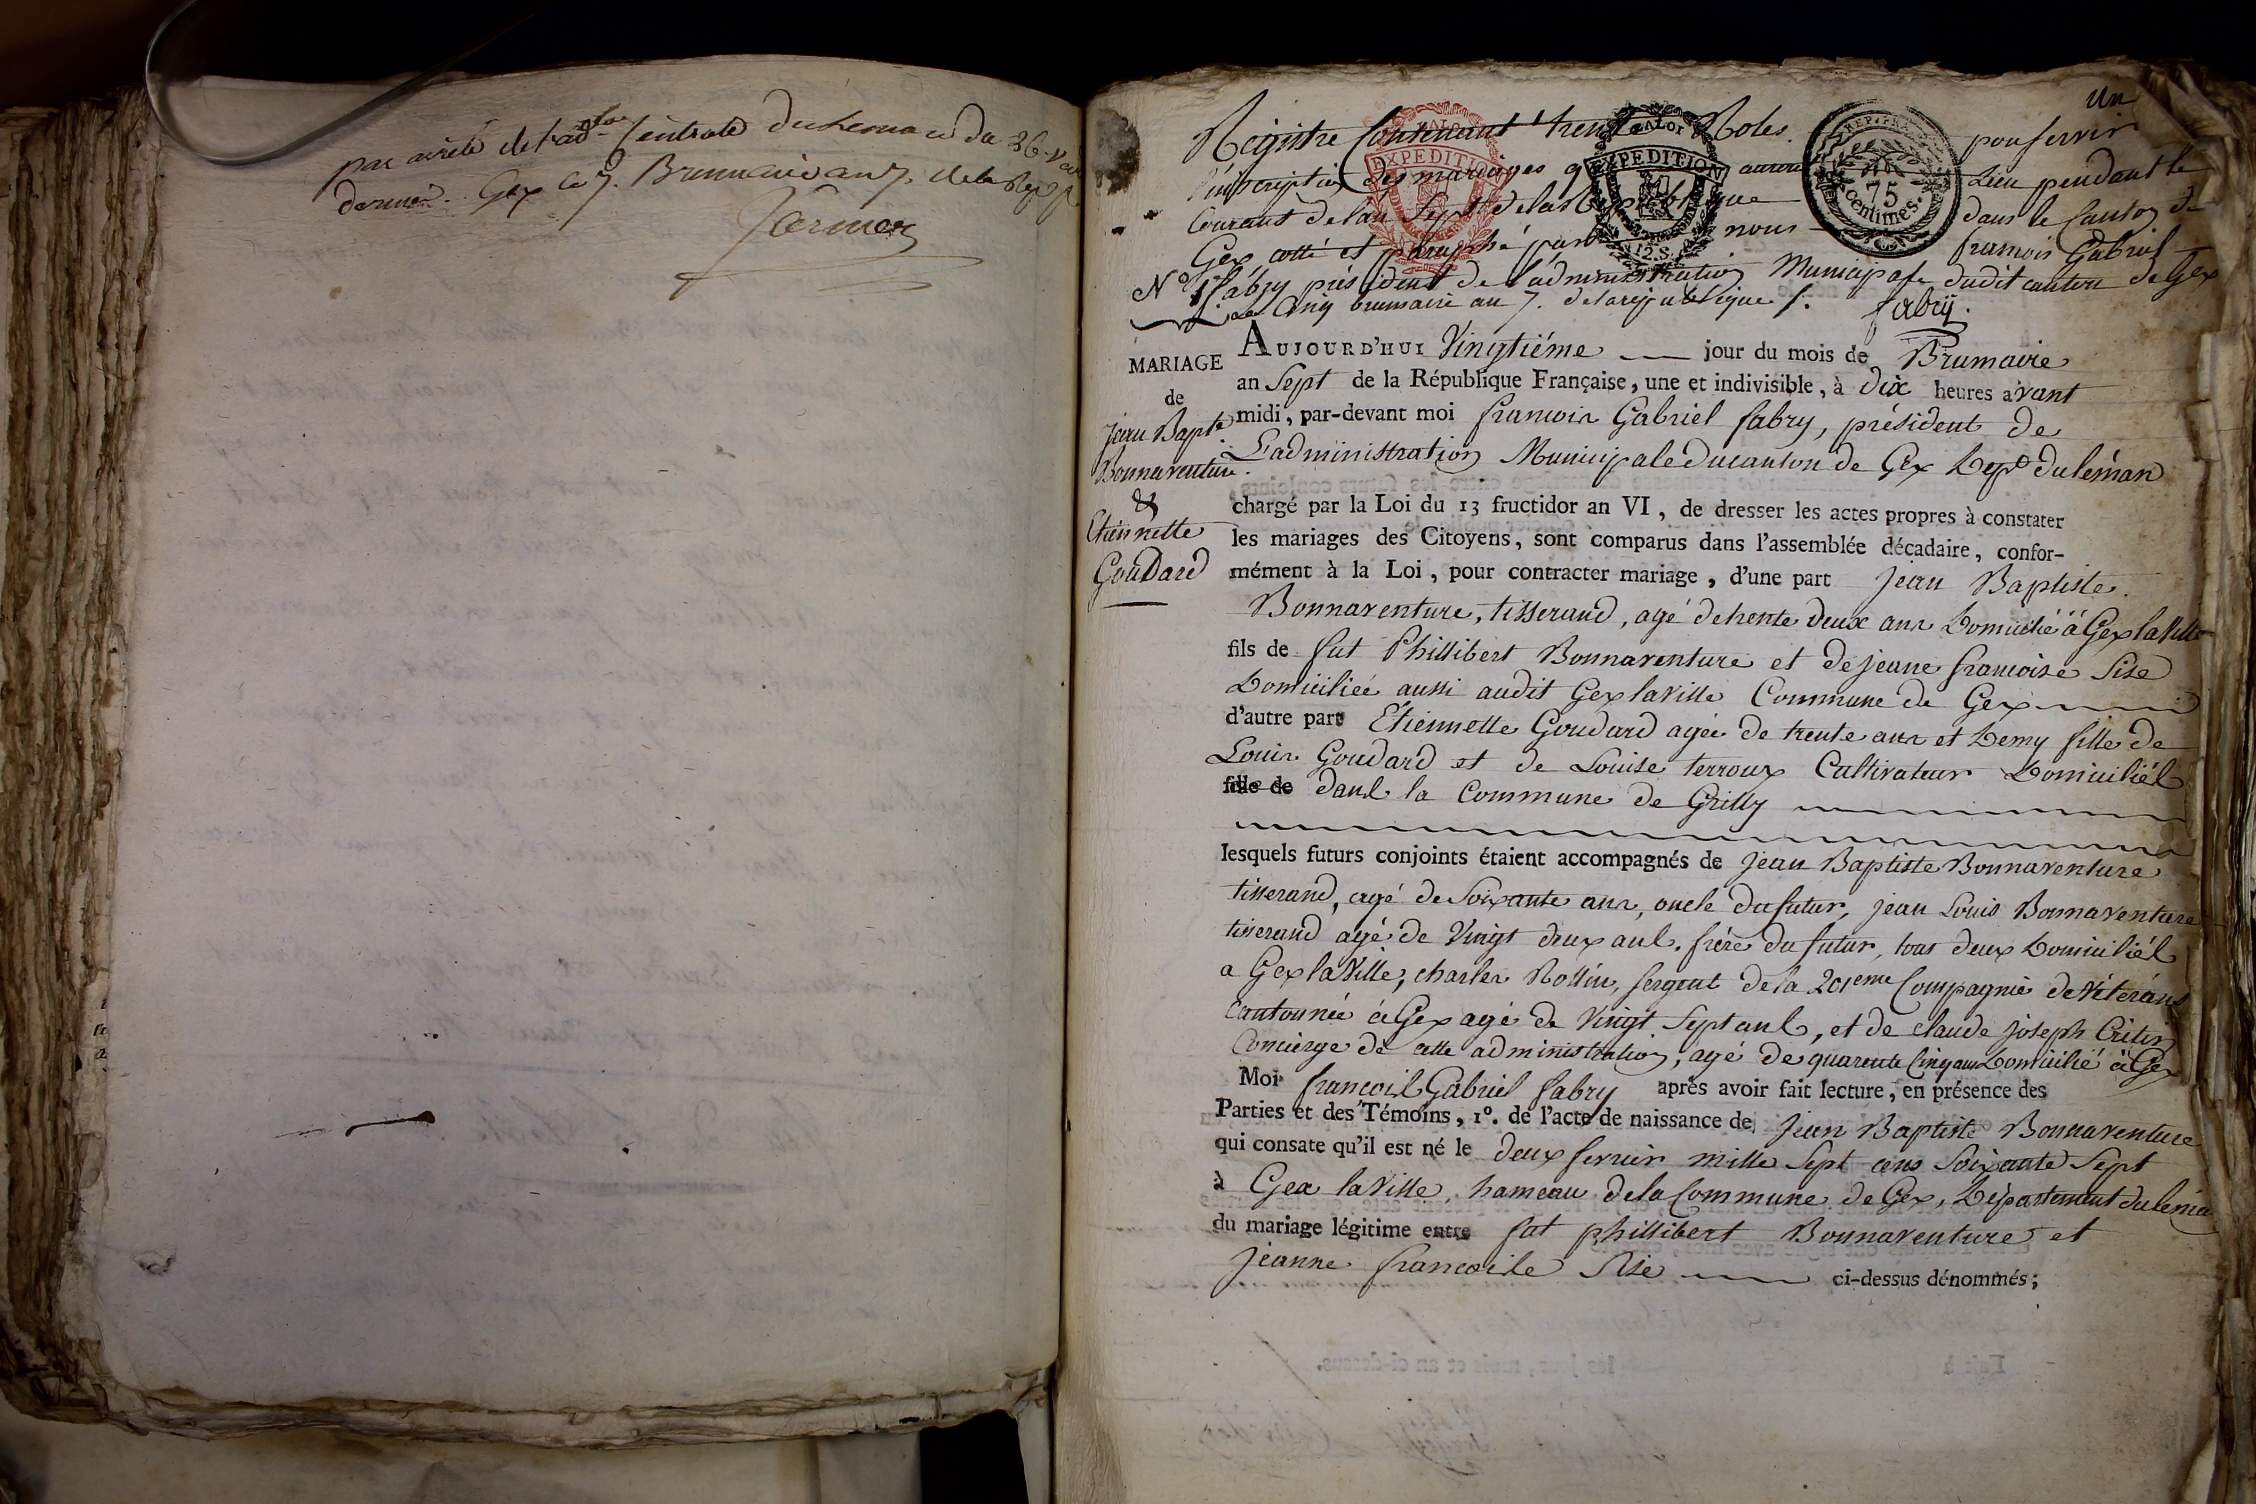 par arrêté de l'ad.on Centrale du Leman du 26. Vend
dernier. Gex ce 7. Brumaire an 7. de la Rep.
un
Registre Contenant trente Roles pour servir
l'inscription des mariages qui auront Lieu pendant le
Courant de l'an Sept de la Republique dans le Canton de
Gex cotté et paraphé par nous francois Gabriel
fabry président de l'administration Municipale dudit canton de Gex
ce Cinq brumaire an 7. de la republique f. fabry.
EXPEDITION
EXPEDITION
12.S.
REP. FRA.
75
centimes.
N.o 1.
MARIAGE
de
Jean Bapt.e
Bonnaventure.
&
Etiennette
Goudard
AUJOURD'HUI Vingtiéme jour du mois de Brumaire
an Sept de la République Française, une et indivisible, à dix heures avant
midi, par-devant moi francois Gabriel fabry, président de
L'administration Municipale du canton de Gex Dep.t du leman
chargé par la Loi du 13 fructidor an VI, de dresser les actes propres à constater
les mariages des Citoyens, sont comparus dans l'assemblée décadaire, confor-
mément à la Loi, pour contracter mariage, d'une part Jean Baptiste
Bonnaventure, tisserand, agé de trente deux ans Domicilié à Gex la Ville
fils de fut Phillibert Bonnaventure et de jeane francoise Sise
Domiciliée aussi audit Gex la Ville Commune de Gex
d'autre part Etiennette Goudard agée de trente ans et Demy fille de
Louis Goudard et de Louise terroux Cultivateur Domiciliés
fille de dans la Commune de Grilly
lesquels futurs conjoints étaient accompagnés de Jean Baptiste Bonnaventure
tisserand, agé de Soixante ans, oncle du futur, jean Louis Bonnaventure
tisserand agé de Vingt deux ans. frére du futur, tous deux Domiciliés
a Gex la Ville, charles Rollin, sergent de la 201eme Compagnie de Vétérans
Cantonnée à Gex agé de Vingt Sept ans, et de claude joseph Critin
Concierge de cette administration, agé de quarente Cinq ans Domicilié à Gex
Moi francois Gabriel fabry après avoir fait lecture, en présence des
Parties et des Témoins, 1°. de l'acte de naissance de Jean Baptiste Bonnaventure
qui consate qu'il est né le deux fevrier mille Sept cens Soixante Sept
à Gex la Ville, hameau de la Commune de Gex, Département du léman
du mariage légitime entre fut phillibert Bonnaventure et
Jeanne francoise Sise ci-dessus dénommés;